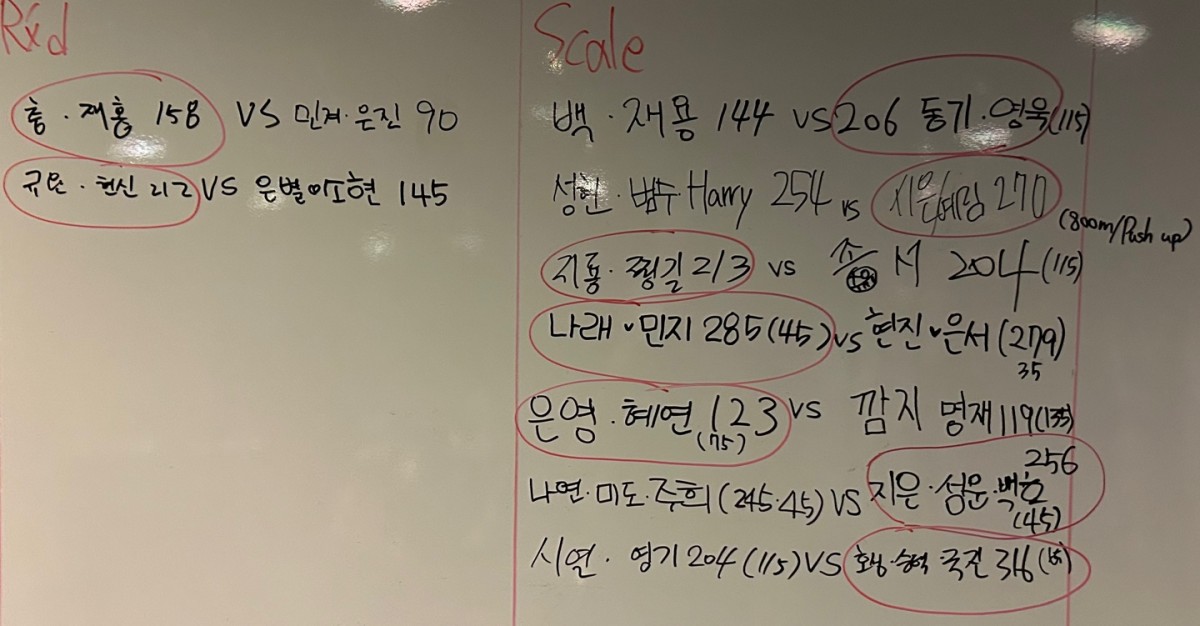 Rx'd
홍·재홍 158 VS 민겨·은진 90
규문·현신 212 VS 은별 소현 145
Scale
백·재용 144 VS 206 동기·영욱(115)
성현·범수 Harry 254 vs 지은 혜림 270
(800m/Push up)
지룡·찡길 213 vs 서 204(115)
나래·민지 285(45) VS 현진·은서(279)
35
은영·혜연 123 VS 깜지 명재 119(135)
(75)
나연·미도·주희(245·45) VS 지은·성문·백호 256
(45)
시열·영기 204(115) VS 국진 316